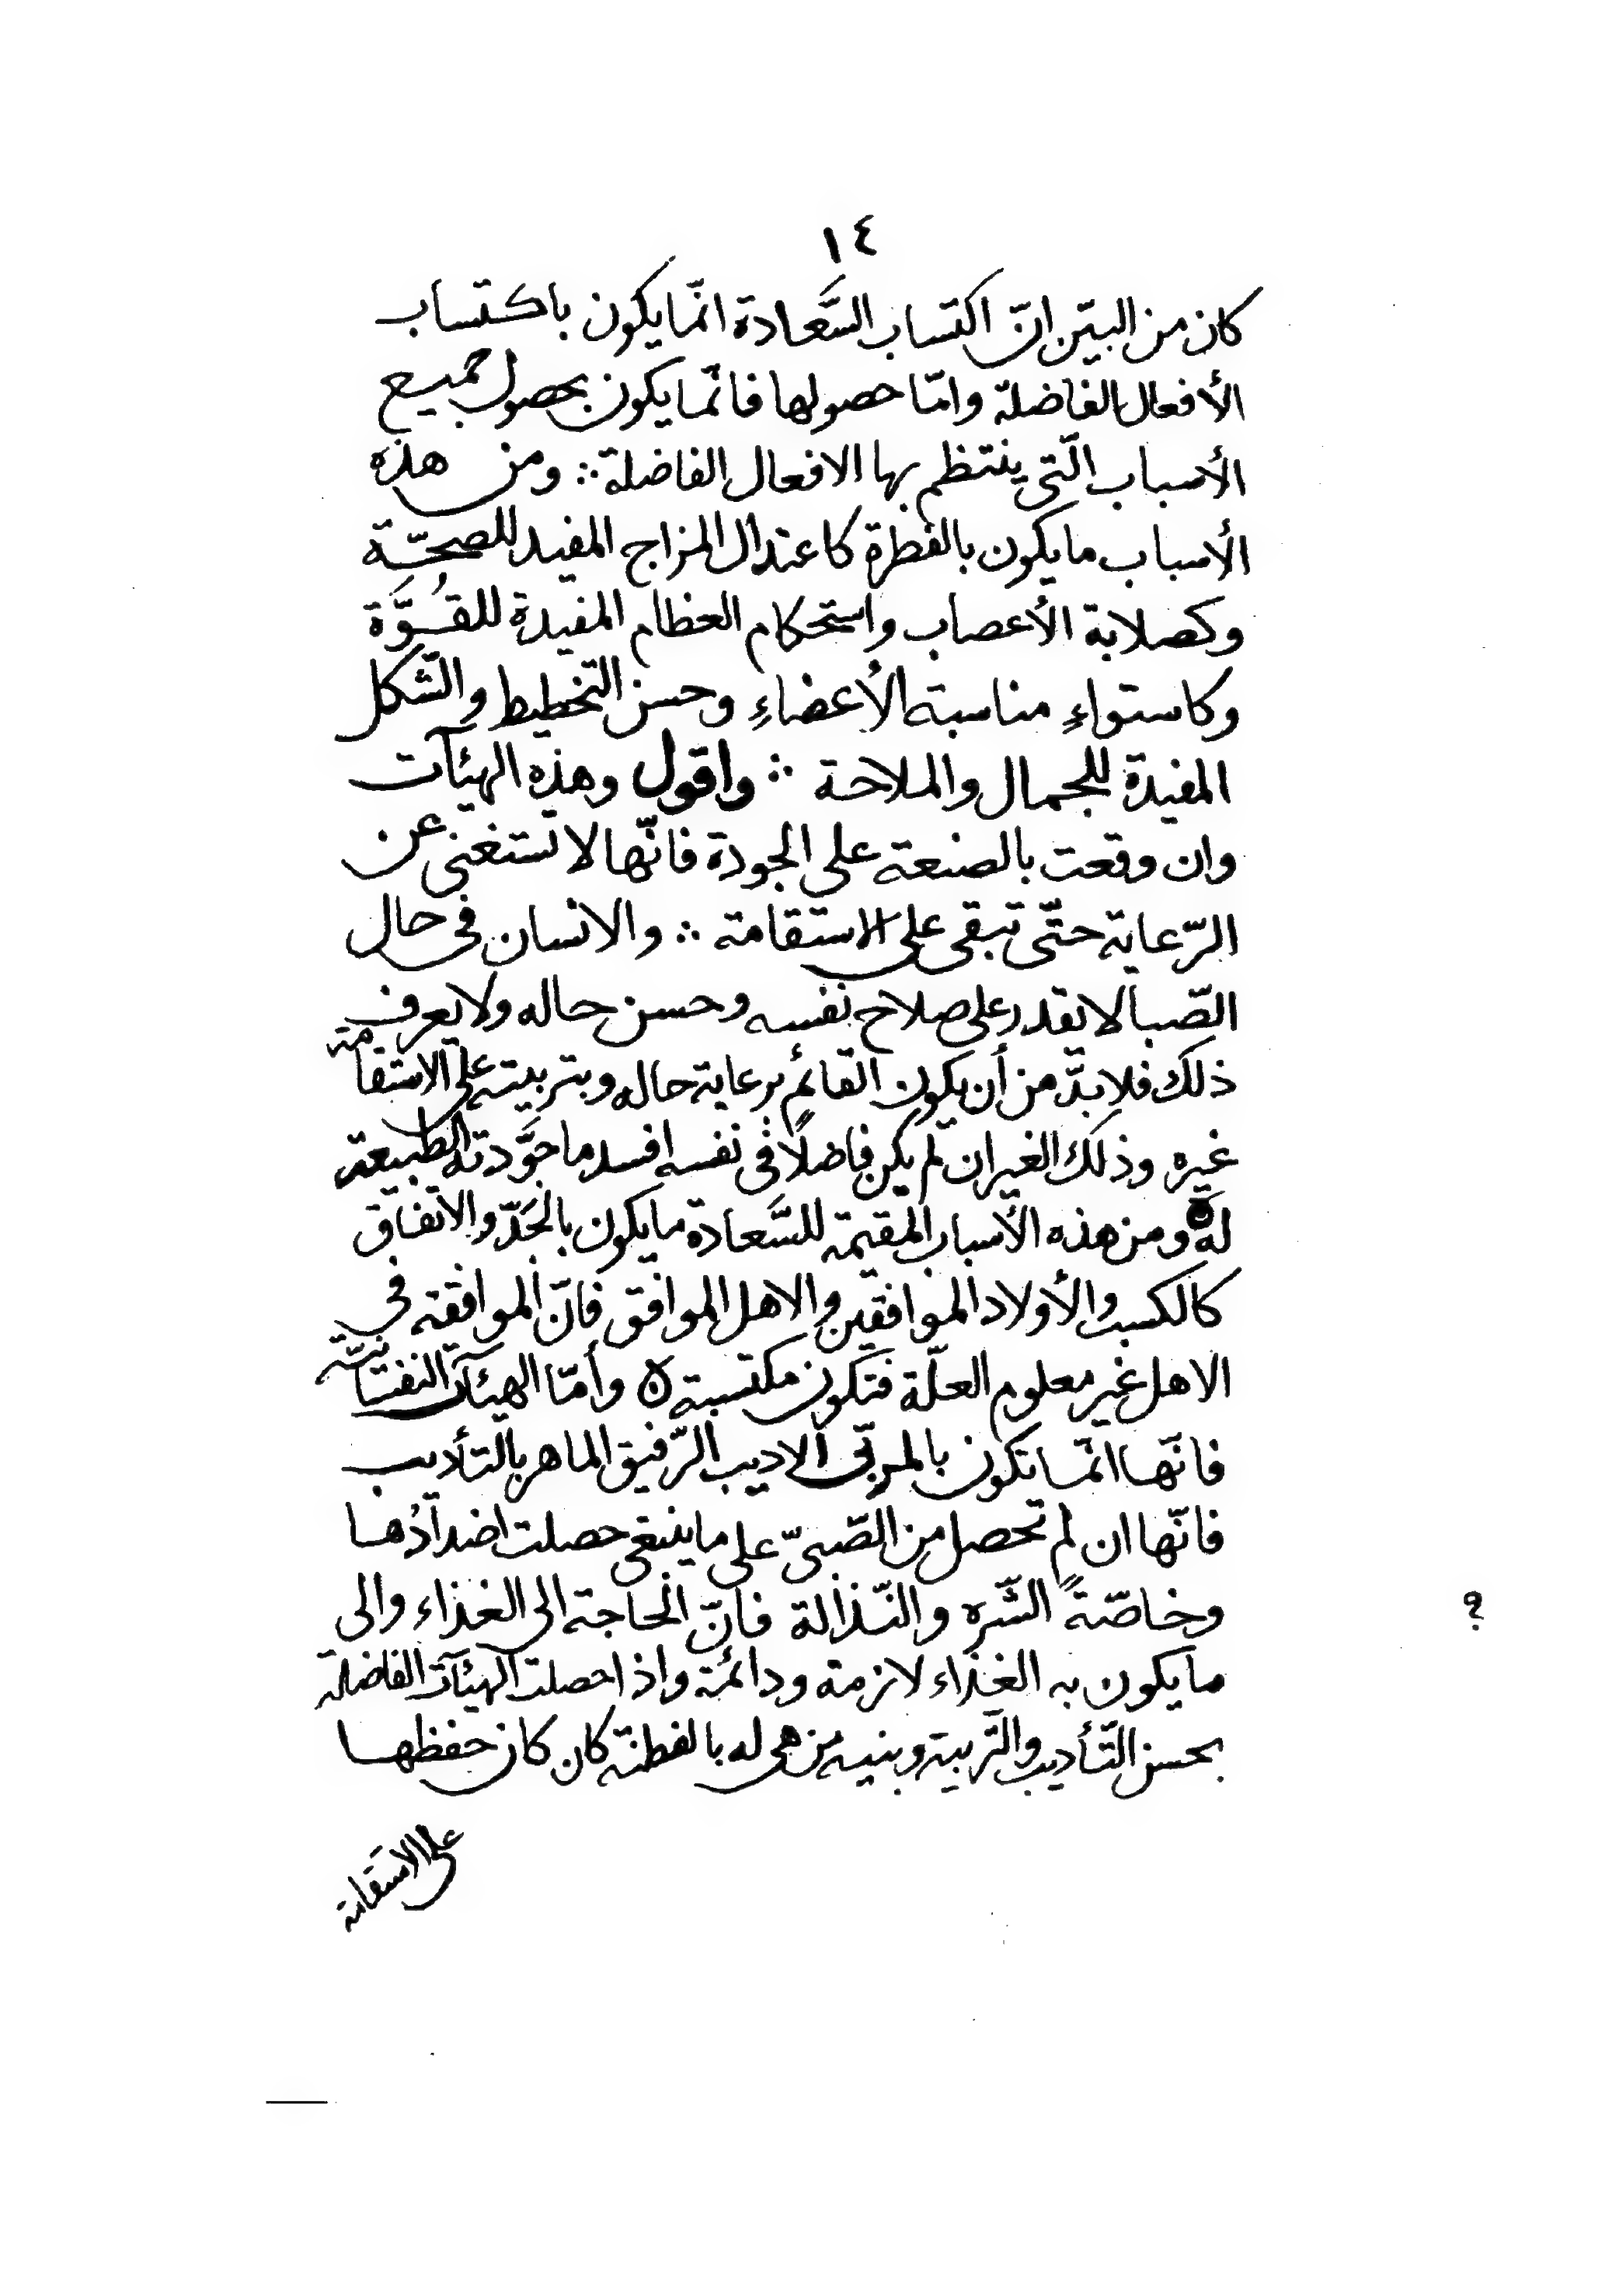 ١٤
كان من البيّن انّ اكتساب السَّعادة انّما يكون باكتساب
الأفعال الفاضلة وامّا حصولها فانّما يكون بحصول جميع
الأسباب الّتى ينتظم بها الافعال الفاضلة ∴ ومن هذه
الأسباب ما يكون بالفطرة كاعتدال المزاج المفيد للصحّة
وكصلابة الأعصاب واستحكام العظام المفيدة للقُوَّة
وكاستواءِ مناسبة الأعضاءِ وحسن التخطيط والشّكل
المفيدة للجمال والملاحة ∴ واقول وهذه الهيئآت
وان وقعت بالصنعة على الجودة فانّها لا تستغنى عن
الرّعاية حتّى تبقى على الاستقامة ∴ والانسان فى حال
الصّبا لا يقدر على صلاح نفسه وحسن حاله ولا يعرف
ذلك فلا بدّ من أن يكون القائم برعاية حاله وبتربيته على الاستقامة
غيره وذلك الغير ان لم يكن فاضلًا فى نفسه افسد ما جوَّدته الطبيعة
له ومن هذه الأسباب المقيمة للسَّعادة ما يكون بالجَدّ والاتفاق
كالكسب والأولاد الموافقين والاهل الموافق فانّ الموافقة فى
الاهل غير معلوم العلّة فتكون مكتسبة ٥ وأمّا الهيئآت النفسانيّة
فانّها انّما تكون بالمربّى الاديب الرّفيق الماهر بالتأديب
فانّها ان لم تحصل من الصّبىّ على ما ينبغى حصلت اضدادُها
وخاصّةً الشّره والنّذالة فانّ الحاجة الى الغذاء والى
ما يكون به الغذاء لازمة ودائمة واذا حصلت الهيئآت الفاضلة
بحسن التّأديب والتّربية وبنيه من هى له بالفطنة كان كان حفظها
على الاستقامة
؟